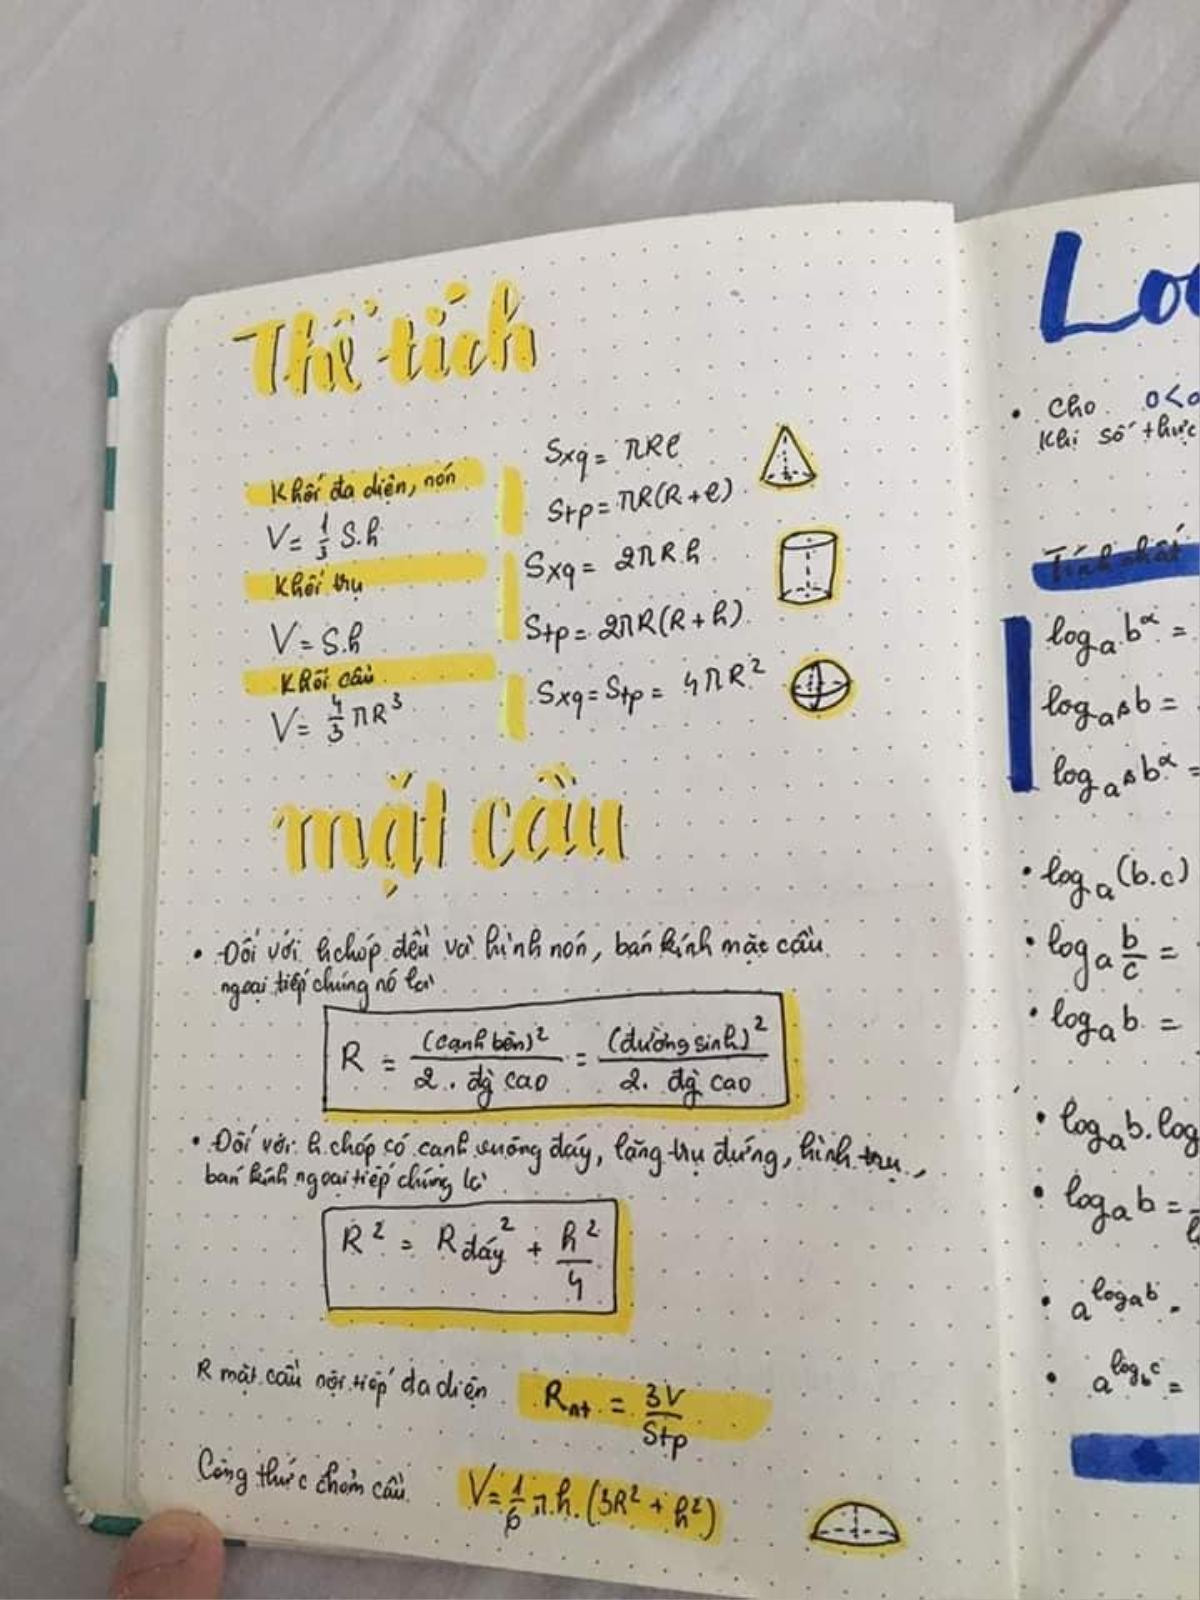 Thể tích
Khối đa diện, nón
V = 1/3 S.h
Sxq = πRl
Stp = πR(R + l)
Khối trụ
V = S.h
Sxq = 2πR.h
Stp = 2πR(R + h)
Khối cầu
V = 4/3 πR³
Sxq = Stp = 4πR²
mặt cầu
• Đối với h.chóp đều và hình nón, bán kính mặt cầu
ngoại tiếp chúng nó là
R = (cạnh bên)² / 2. đg cao = (đường sinh)² / 2. đg cao
• Đối với: h.chóp có cạnh vuông đáy, lăng trụ đứng, hình trụ,
bán kính ngoại tiếp chúng là
R² = Rđáy² + h²/4
R mặt cầu nội tiếp đa diện Rnt = 3V/Stp
Công thức chỏm cầu V = 1/6 π.h.(3R² + h²)
• Cho 0<
Khi số thực
Tính chất
logₐ b^α =
logₐβ b =
logₐβ b^α =
• logₐ (b.c)
• logₐ b/c =
• logₐ b =
• logₐ b. log
• logₐ b =
• a^logₐb
• a^log_b c =